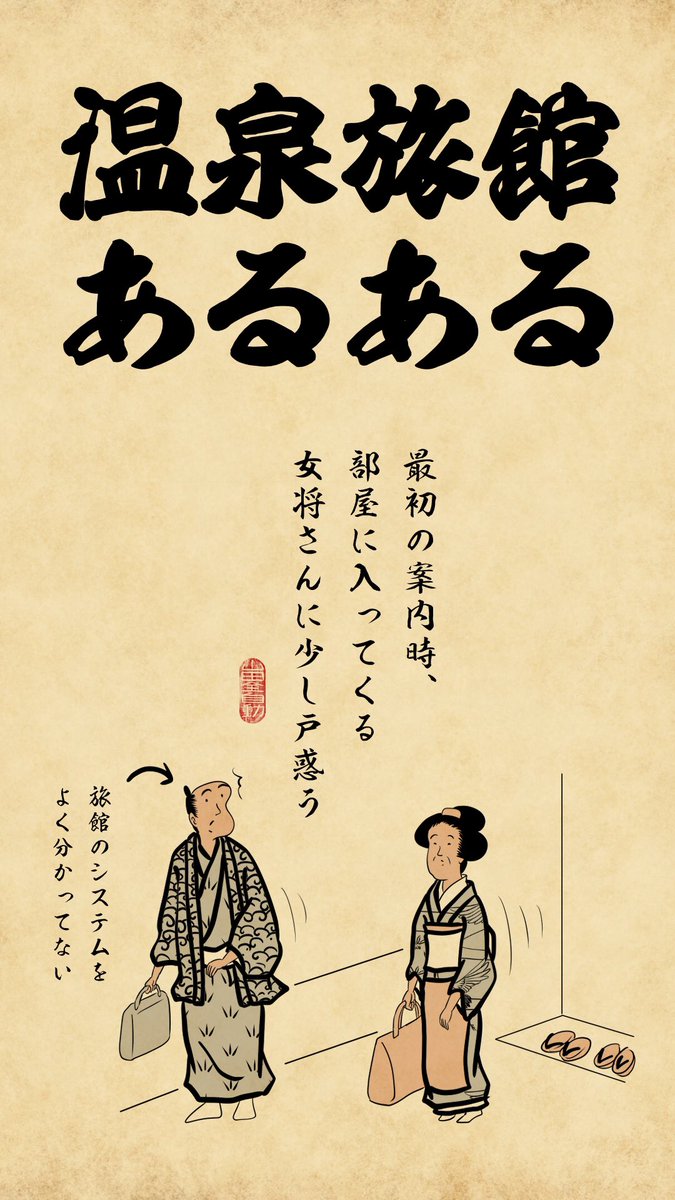 温泉旅館
あるある
最初の案内時、
部屋に入ってくる
女将さんに少し戸惑う
旅館のシステムを
よく分かってない